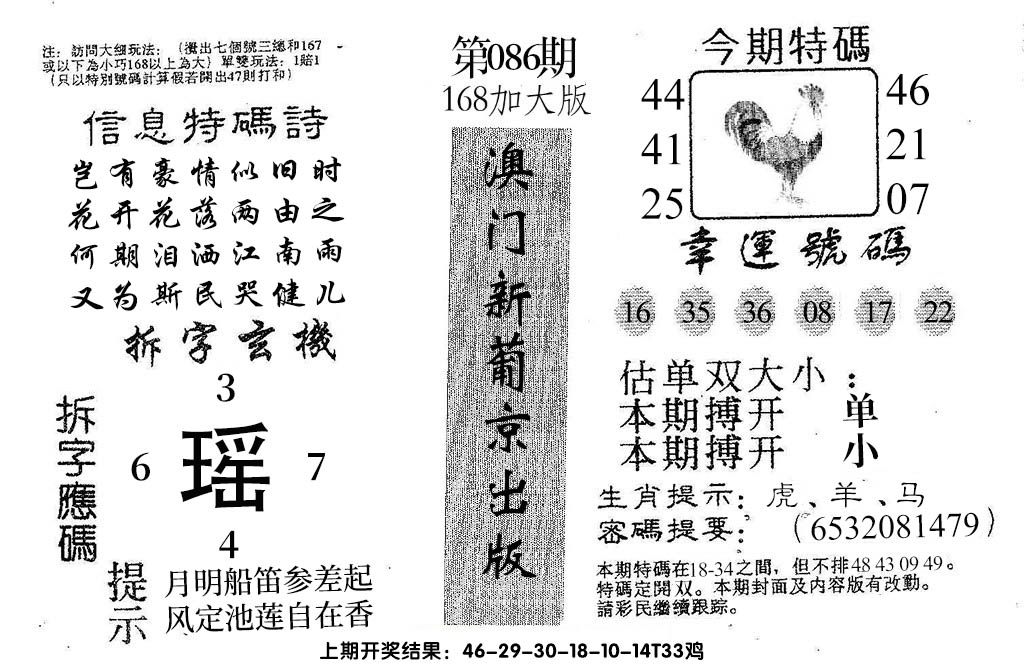 注：訪問大细玩法：（攪出七個號三總和167
或以下為小巧168以上為大）單雙玩法：1賠1
（只以特別號碼計算假若開出47則打和）
信息特碼詩
岂有豪情似旧时
花开花落两由之
何期泪洒江南雨
又为斯民哭健儿
拆字玄機
拆字應碼
3
6 瑶 7
4
提示
月明船笛参差起
风定池莲自在香
第086期
168加大版
澳门新葡京出版
今期特碼
44 46
41 21
25 07
幸運號碼
16 35 36 08 17 22
估单双大小：
本期搏开 单
本期搏开 小
生肖提示：虎、羊、马
密碼提要：（6532081479）
本期特碼在18-34之間，但不排48 43 09 49。
特碼定開双。本期封面及内容版有改動。
請彩民繼續跟踪。
上期开奖结果：46-29-30-18-10-14T33鸡